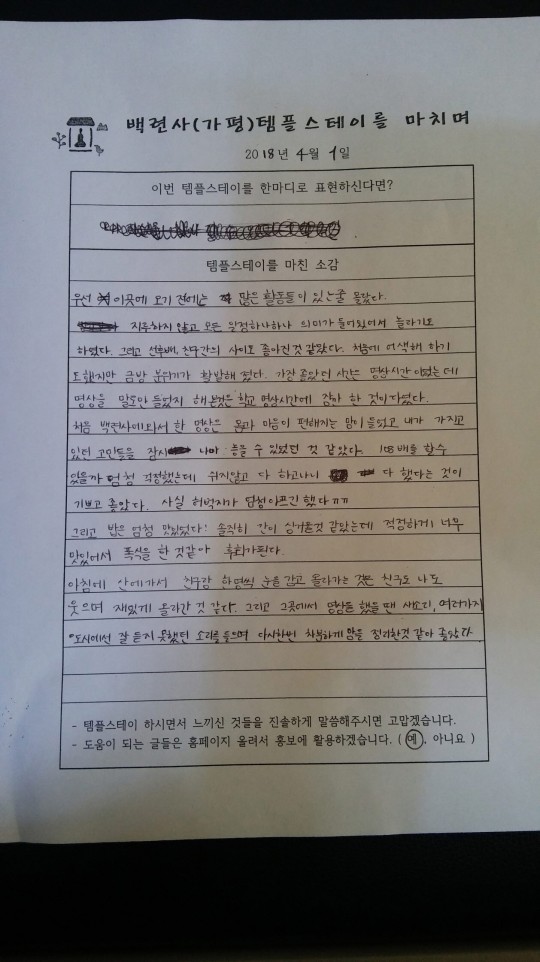 백련사(가평)템플스테이를 마치며
2018년 4월 1일
이번 템플스테이를 한마디로 표현하신다면?
템플스테이를 마친 소감
우선 이곳에 오기 전에는 많은 활동들이 있는줄 몰랐다.
지루하지 않고 모든 일정하나하나 의미가 들어있어서 놀라기도
하였다. 그리고 선후배, 친구간의 사이도 좋아진것 같았다. 처음에 어색해 하기
도했지만 금방 분위기가 활발해 졌다. 가장 좋았던 시간은 명상시간 이었는데
명상을 말로만 들었지 해본것은 학교 명상시간에 잠깐 한 것이 다였다.
처음 백련사에와서 한 명상은 몸과 마음이 편해지는 맘이 들었고 내가 가지고
있던 고민들을 잠시 나마 놓을 수 있었던 것 같았다. 108배를 할수
있을까 엄청 걱정했는데 쉬지않고 다 하고나니 다 했다는 것이
기쁘고 좋았다. 사실 허벅지가 엄청아프긴 했다ㅠㅠ
그리고 밥은 엄청 맛있었다! 솔직히 간이 싱거울것 같았는데 걱정하게 너무
맛있어서 폭식을 한 것같아 후회가된다.
아침에 산에가서 친구랑 한명씩 눈을 감고 올라가는 것은 친구도 나도
웃으며 재밌게 올라간 것 같다. 그리고 그곳에서 명상을 했을 땐 새소리, 여러가지
도시에선 잘 듣지 못했던 소리를 들으며 다시한번 차분하게 맘을 정리한것 같아 좋았다.
- 템플스테이 하시면서 느끼신 것들을 진솔하게 말씀해주시면 고맙겠습니다.
- 도움이 되는 글들은 홈페이지 올려서 홍보에 활용하겠습니다. ( 예, 아니요 )